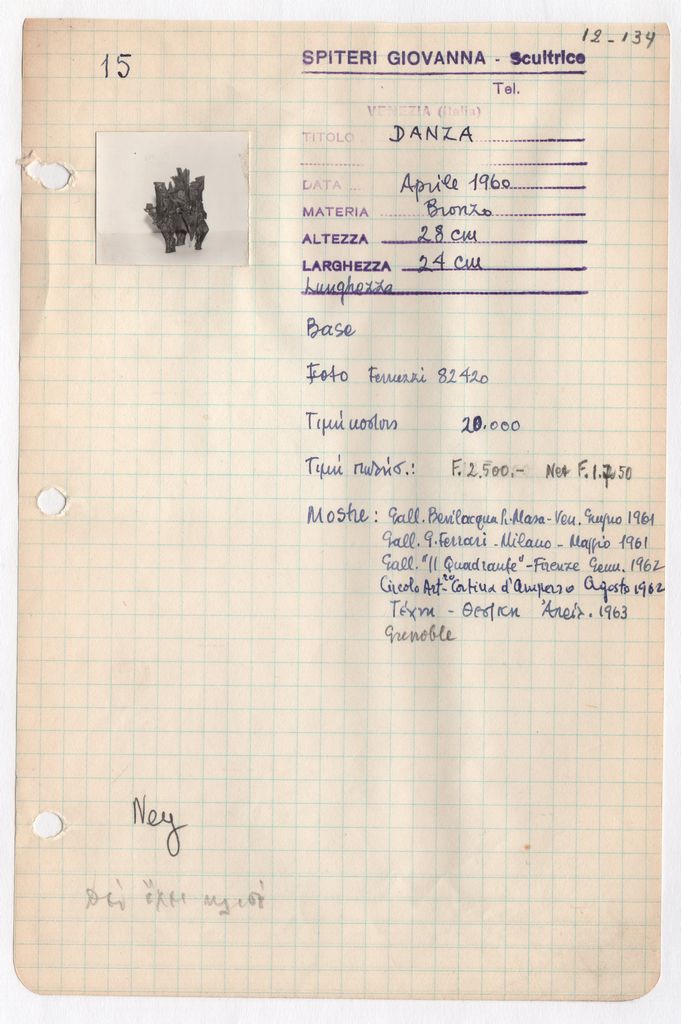 12-134
15
SPITERI GIOVANNA - Scultrice
Tel.
VENEZIA (Italia)
TITOLO DANZA
DATA Aprile 1960
MATERIA Bronzo
ALTEZZA 28 cm
LARGHEZZA 24 cm
Lunghezza
Base
Foto Ferruzzi 82420
Τιμή κόστους 20.000
Τιμή πωλήσ.: F. 2.500.- Net F. 1.750
Mostre: Gall. Bevilacqua L. Masa - Ven. Giugno 1961
Gall. G. Ferrari - Milano - Maggio 1961
Gall. "Il Quadrante" - Firenze Genn. 1962
Circolo Art.co Cortina d'Ampezzo Agosto 1962
Τέχνη - Θεσ/κη Απρίλ. 1963
Grenoble
Ney